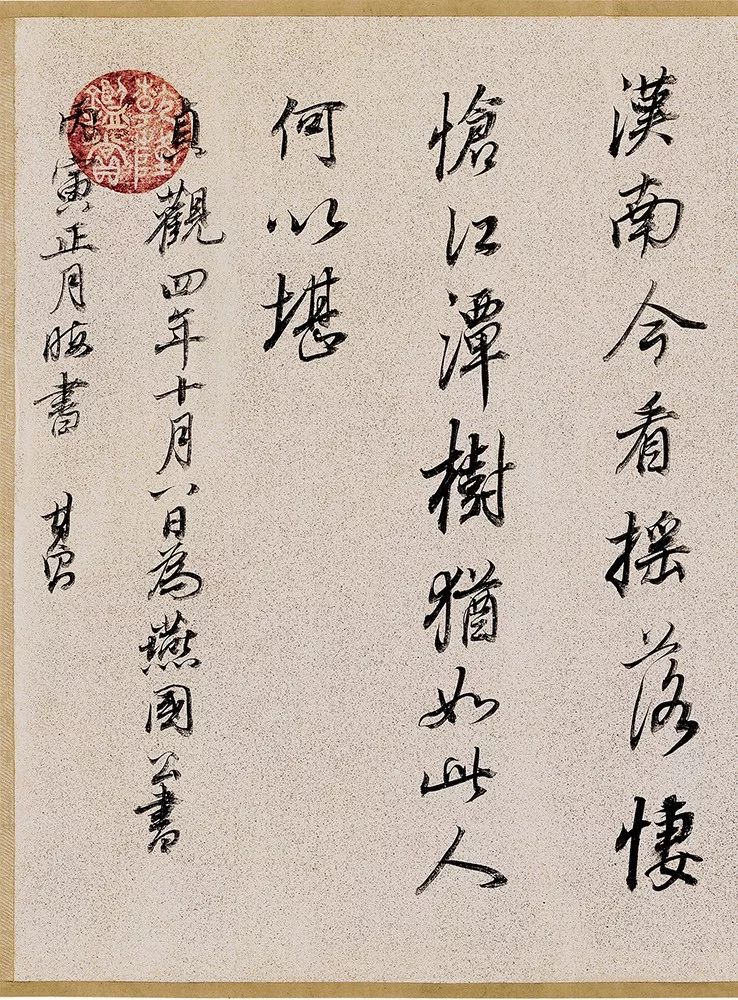 漢南今看摇落悽
愴江潭樹猶如此人
何以堪
貞觀四年十月八日為燕國公書
丙寅正月晦書